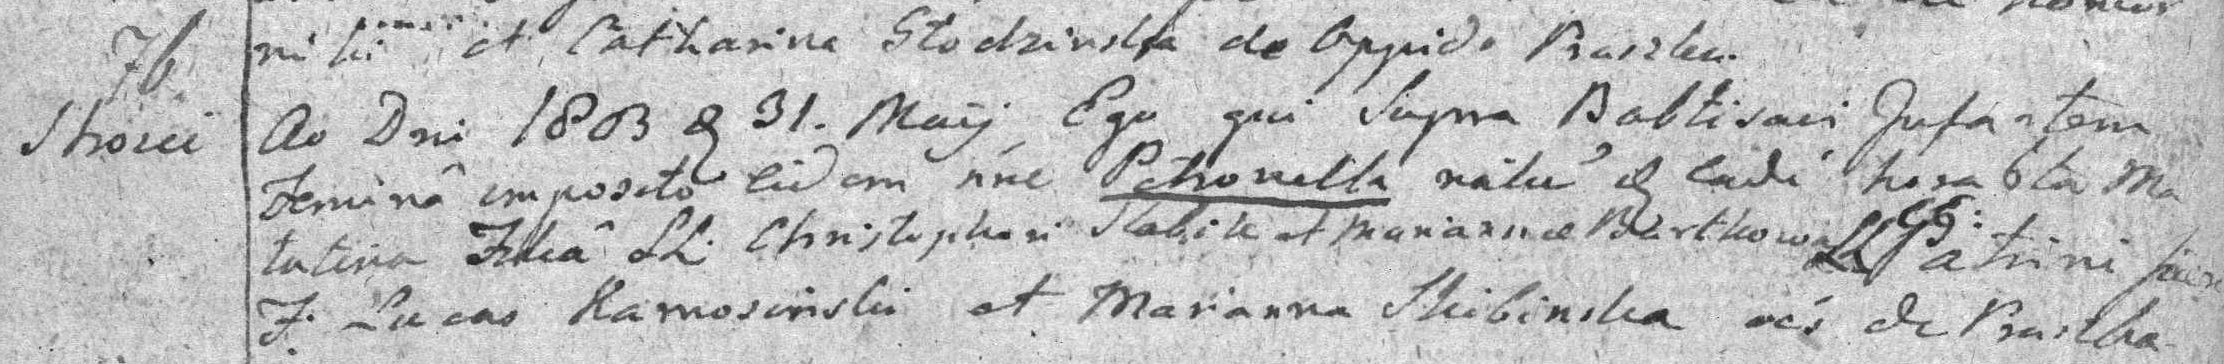 et Catharina Stodzinska de Oppido Praszka.
76
Strojec Ao Dni 1803 d 31. Maij Ego qui Supra Babtisavi Infantem
Feminâ imposito eidem nne Petronella natu d eadē hora 6ta Ma
tutina Filiâ LL. Christophori et Mariannae Patrini fuer
F. Lucas Ramosinski et Marianna Skibinska de Praszka